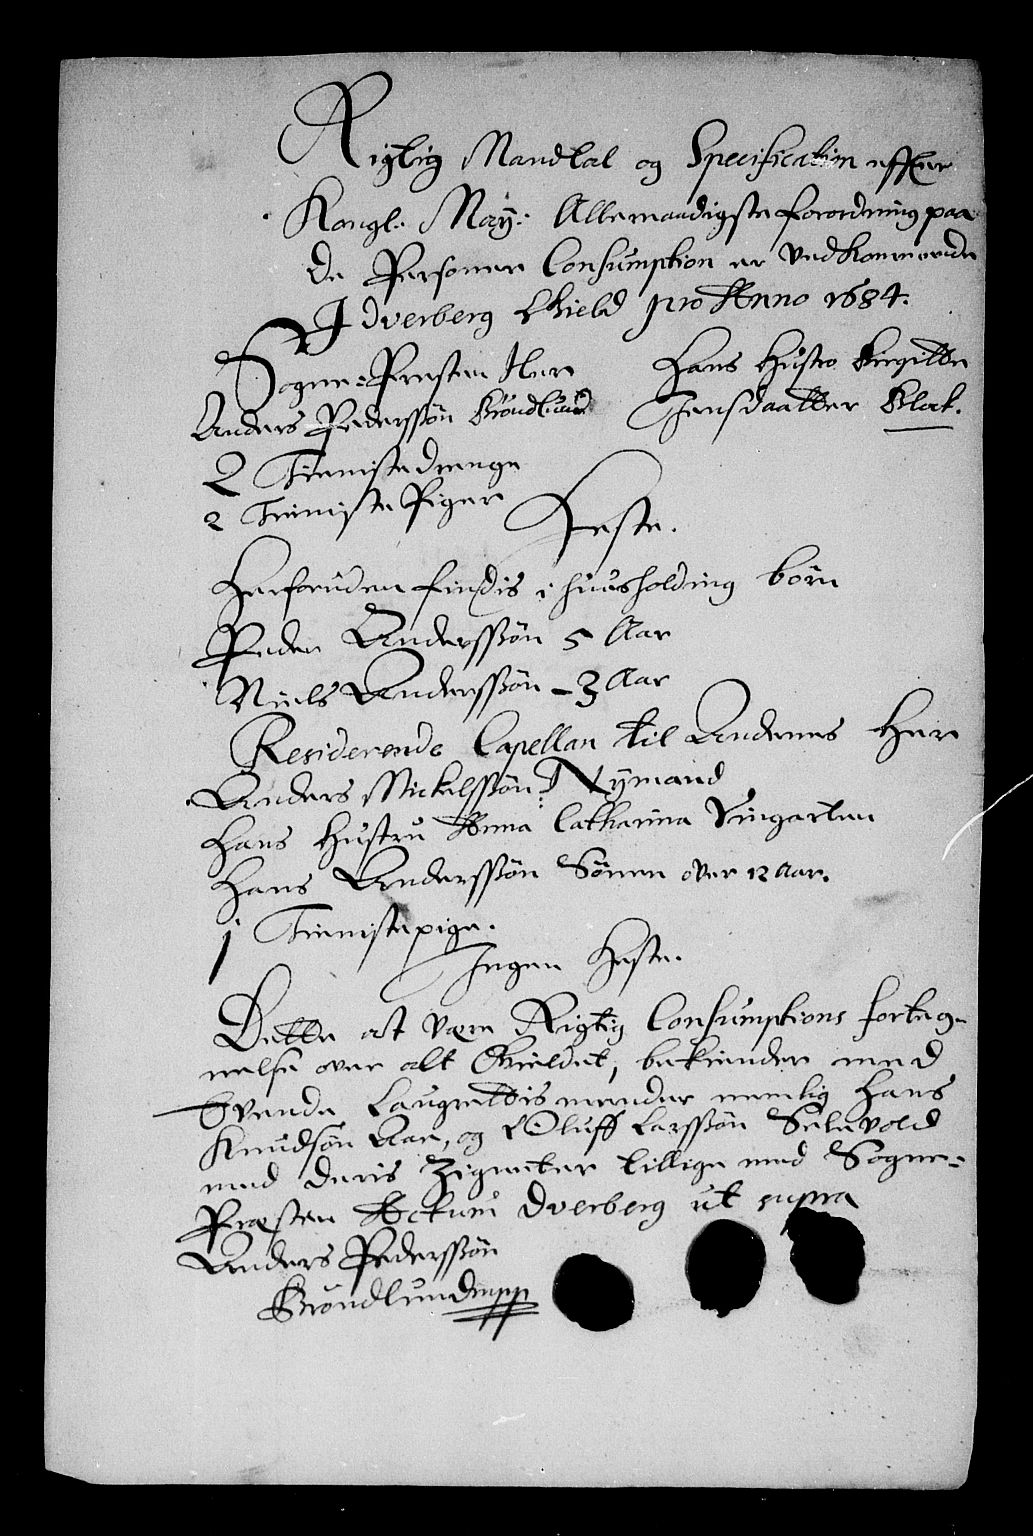 Rigtig Mandtal og Specification effter
Kongl: May: Allernaadigste forordning paa
De Personer Consumption er Vedkommende
I Dverberg Gield pro Anno 1684.
Sogne-Presten Her Hans Hustro Birgitte
Anders Pedersßøn Brøndlund Jensdaatter Blok.
2 Tienistedrenge
2 Tieniste Piger
Heste.
Herforuden findis i huusholding børn
Peder Andersßøn 5 Aar
Niels Andersßøn – 3 Aar
Residerende Capellan til Andenes Her
Anders Mickelsßøn Nymand
Hans Hustru Anna Catharina Vingarten
Hans Andersßøn Sønen over 12 Aar.
1 Tienistepige.
Ingen Heste.
Dette at være Rigtig Consumptions forteg-
nelse over alt Gieldet, bekiender med
Tvende Laugrettis mender nemlig Hans
Knudsøn Aae, og Oluff Larsßøn Selevold
med deris Zigneter tillige med Sogne-
Præsten Actum Dverberg ut supra
Anders Pedersßøn
Brøndlund mpp